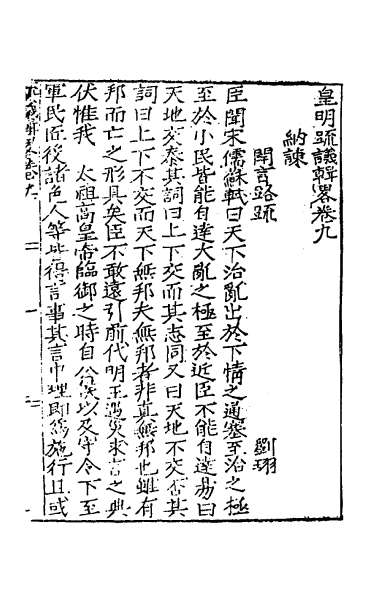 皇明疏議輯畧卷九
納諫
開言路疏 劉珝
臣聞宋儒蘇軾曰天下治亂出於下情之通塞至治之極
至於小民皆能自達大亂之極至於近臣不能自達易曰
天地交泰其詞曰上下交而其志同又曰天地不交否其
詞曰上下不交而天下無邦夫無邦者非真無邦也雖有
邦而亡之形具矣臣不敢遠引前代明王遇災求言之典
伏惟我 太祖高皇帝臨御之時自公侯以及守令下至
軍民匠役諸色人等皆得言事其言中理即爲施行且或